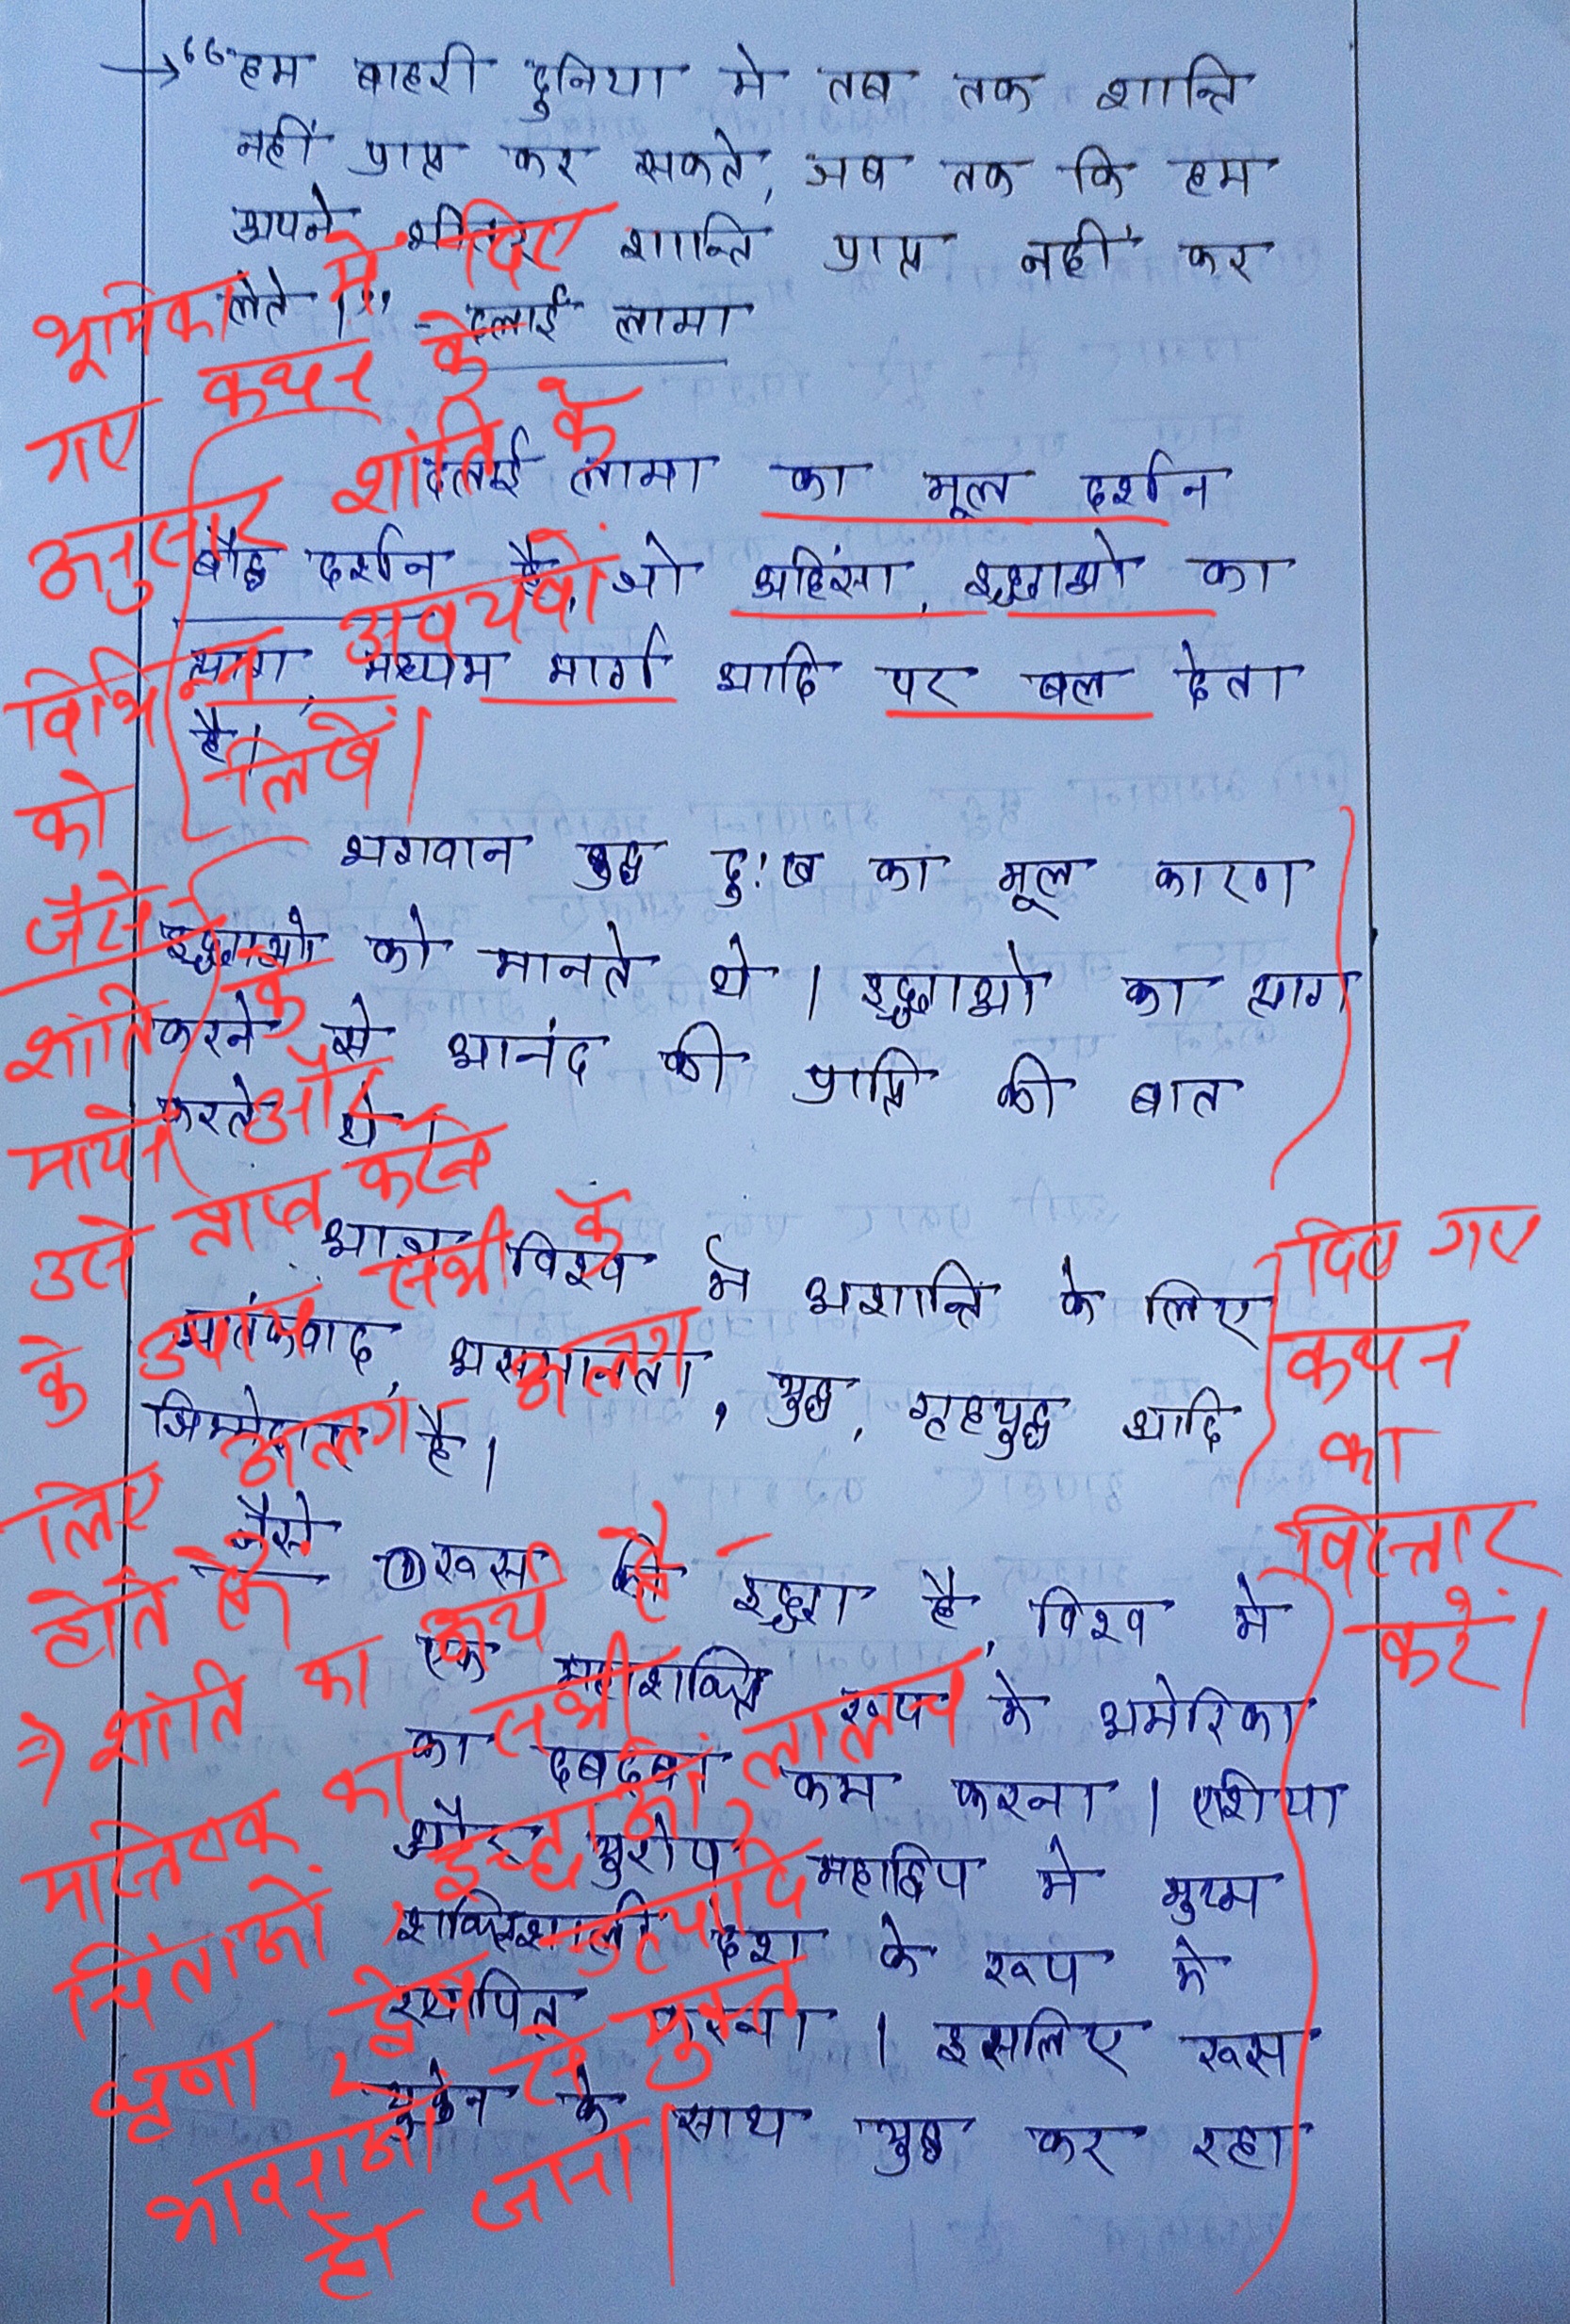 → "हम बाहरी दुनिया मे तब तक शान्ति
नहीं प्राप्त कर सकते, जब तक कि हम
अपने भीतर शान्ति प्राप्त नहीं कर
लेते।" - दलाई लामा
दलाई लामा का मूल दर्शन
बौद्ध दर्शन है, जो अहिंसा, इच्छाओ का
त्याग, मध्यम मार्ग आदि पर बल देता
है।
भगवान बुद्ध दु:ख का मूल कारण
इच्छाओ को मानते थे। इच्छाओ का त्याग
करने से आनंद की प्राप्ति की बात
करते थे।
आज विश्व मे अशान्ति के लिए
आतंकवाद, असमानता, युद्ध, गृहयुद्ध आदि
जिम्मेदार है।
जैसे ① रूस की इच्छा है, विश्व मे
एक महाशक्ति रूप मे अमेरिका
का दबदबा कम करना। एशिया
और युरोप महाद्विप मे मुख्य
शक्तिशाली देश के रूप मे
स्थापित करना। इसलिए रूस
यूक्रेन के साथ युद्ध कर रहा
भूमिका में दिए
गए कथन के
अनुसार शांति के
विभिन्न अवयवों
को लिखें।
जैसे-
शांति के
मायने और
उसे प्राप्त करने
के उपाय सभी के
लिए अलग अलग
होते हैं
⇒ शांति का अर्थ है -
मस्तिष्क का सभी
चिंताओं, इच्छाओं, लालच,
घृणा, द्वेष इत्यादि
भावनाओं से मुक्त
हो जाना।
दिए गए
कथन
का
विस्तार
करें।